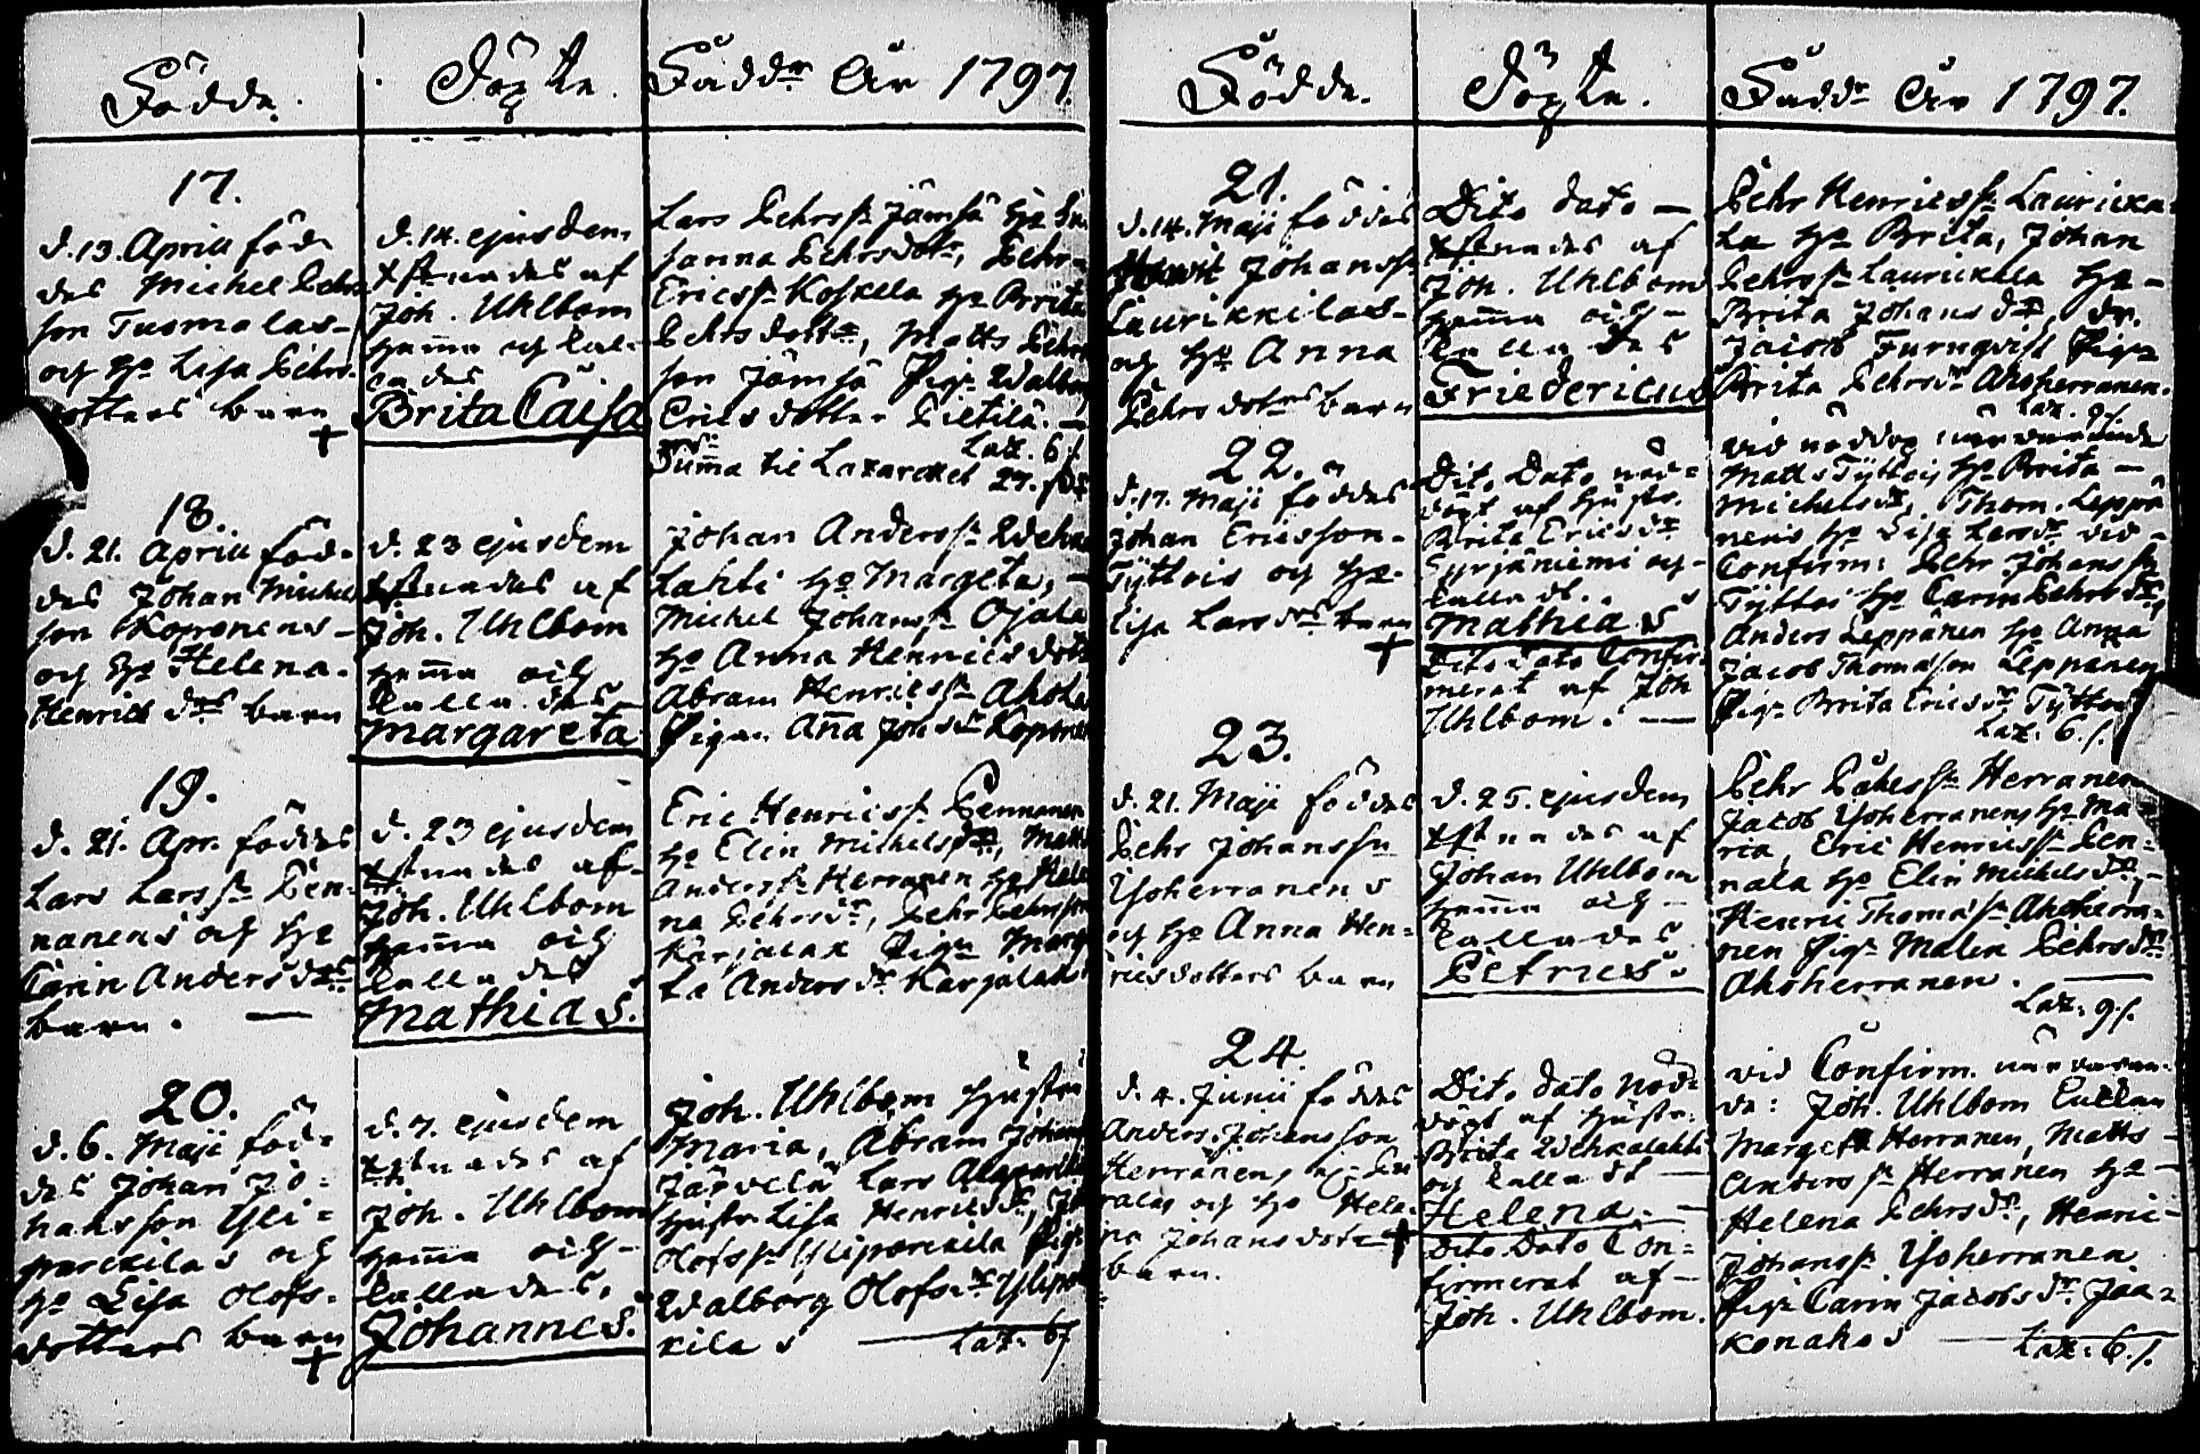 Födde.
Döpte.
Faddr År 1797.
17.
d. 13. April föd-
des Michel Pehrs
son Tuomalas-
och h: Lisa Pehrs
dotters barn
+
d. 14. ejusdem
xstnades af
Joh. Uhlbom
hema och kal-
lades
Brita Caisa
Lars Pehrss: Jämsä h: Su-
sanna Pehrsdotr, Pehr
Ericss: Koskela h: Brita
Pehrsdottr, Matts Pehrs
son Jämsä Pig: Walborg
Ericsdotter Pietilä. —
Laz. 6 s.
Suma til Lazarettet 27. s
18.
d. 21. April föd-
des Johan Michels
son Koponens-
och h: Helena
Henrics drs barn
d. 23 ejusdem
xstnades af
Joh. Uhlbom
hema och
kallades
Margareta
Johan Anderss: Wehka
lahti h: Margeta, —
Michel Johanss: Ojala
h: Anna Henricsdotr
Abram Henricss: Ahola
Pigan Ana Johsdr Kopone
19.
d. 21. Apr. föddes
Lars Larss: Pen-
nanens och h:
Carin Anders drs
barn. —
d. 23 ejusdem
xstnades af
Joh. Uhlbom
hema och
kallades
Mathias.
Eric Henricss: Pennanen
h: Elin Michelsdr, Matts
Anderss: Herranen h: Hele
na Pehrsdr, Pehr Pehrsson
Karjalax Pigan Marge
ta Andersdr Karjalax
20.
d. 6. Maji föd-
des Johan Jo-
hansson Yli-
parckilas och
h: Lisa Olofs-
dotters barn
+
d. 7. ejusdem
xstnades af
Joh. Uhlbom
hema och-
kallades,
Johannes.
Joh. Uhlbom hustru
Maria, Abram Johans
Järvelä Lars Alaparcki
hustr Lisa Henricsdr, Jo
Olofss: Yliparckila Pig:
Walborg Olofsdr Ylipar
kilas — Laz. 6 s
Födde.
Döpte.
Faddr År 1797.
21.
d. 14. Maji föddes
Johanss:
Laurikkilas-
och h: Anna
Pehrsdotrs barn
Dito dato —
xstnades af
Joh. Uhlbom
hema och-
kallades
Friedericus
Pehr Henricss: Lauricka-
la h: Brita, Johan
Pehrss: Laurickala h: -
Brita Johansdr, dr.
Jacob Furuqvist Pig:
Brita Pehrsdr Ahoherranen.
Laz. 9 s.
22.
d. 17. Maji föddes
Johan Ericsson-
Tyttois och h:
Lisa Larsdrs barn
+
Dito Dato nöd-
döpt af hustr.
Brita Ericsdr
Syrjäniemi och-
kalladt.
Mathias
Dito dato Confir-
merat af Joh
Uhlbom. —
vid nöddop närvarande
Matts Tyttois h: Brita —
Michelsdr, Thom. Leppä
nens h: Lisa Larsdr vid-
Confirm: Pehr Johanss:
Tyttoi h: Carin Pehrsdr,
Anders Leppänen h: Anna
Jacob Thomasson Leppänen
Pig: Brita Ericsdr Tyttoi
Laz. 6 s.
23.
d. 21. Maji föddes
Pehr Johanssn
Ysoherranens
och h: Anna Hen-
ricsdotters barn
d. 25. ejusdem
xstnades af
Johan Uhlbom
hema och-
kallades
Petrus.
Pehr Påkess: Herranen
Jacob Ysoherranens h: Ma
ria, Eric Henricss: Pen-
nala h: Elin Michelsdr, -
Henric Thomass: Ahoherra-
nen Pig: Malin Pehrsdr
Ahoherranen. —
Laz. 9 s.
24.
d. 4. Junii föddes
Anders Johansson
Herranens
och h: Hele-
na Johansdotrs +
barn.
Dito dato nöd-
döpt af hustr:
Brita Wehkalahti
och kalladt —
Helena. —
Dito Dato Con-
firmerat af —
Joh. Uhlbom.
vid Confirm. närvaran-
de: Joh. Uhlbom Enkan
Margeta Herranen, Matts -
Anderss: Herranen h: -
Helena Pehrsdr, Henric-
Johanss: Ysoherranen
Pig: Carin Jacobsdr. Jaa-
konahos — Laz. 6 s.